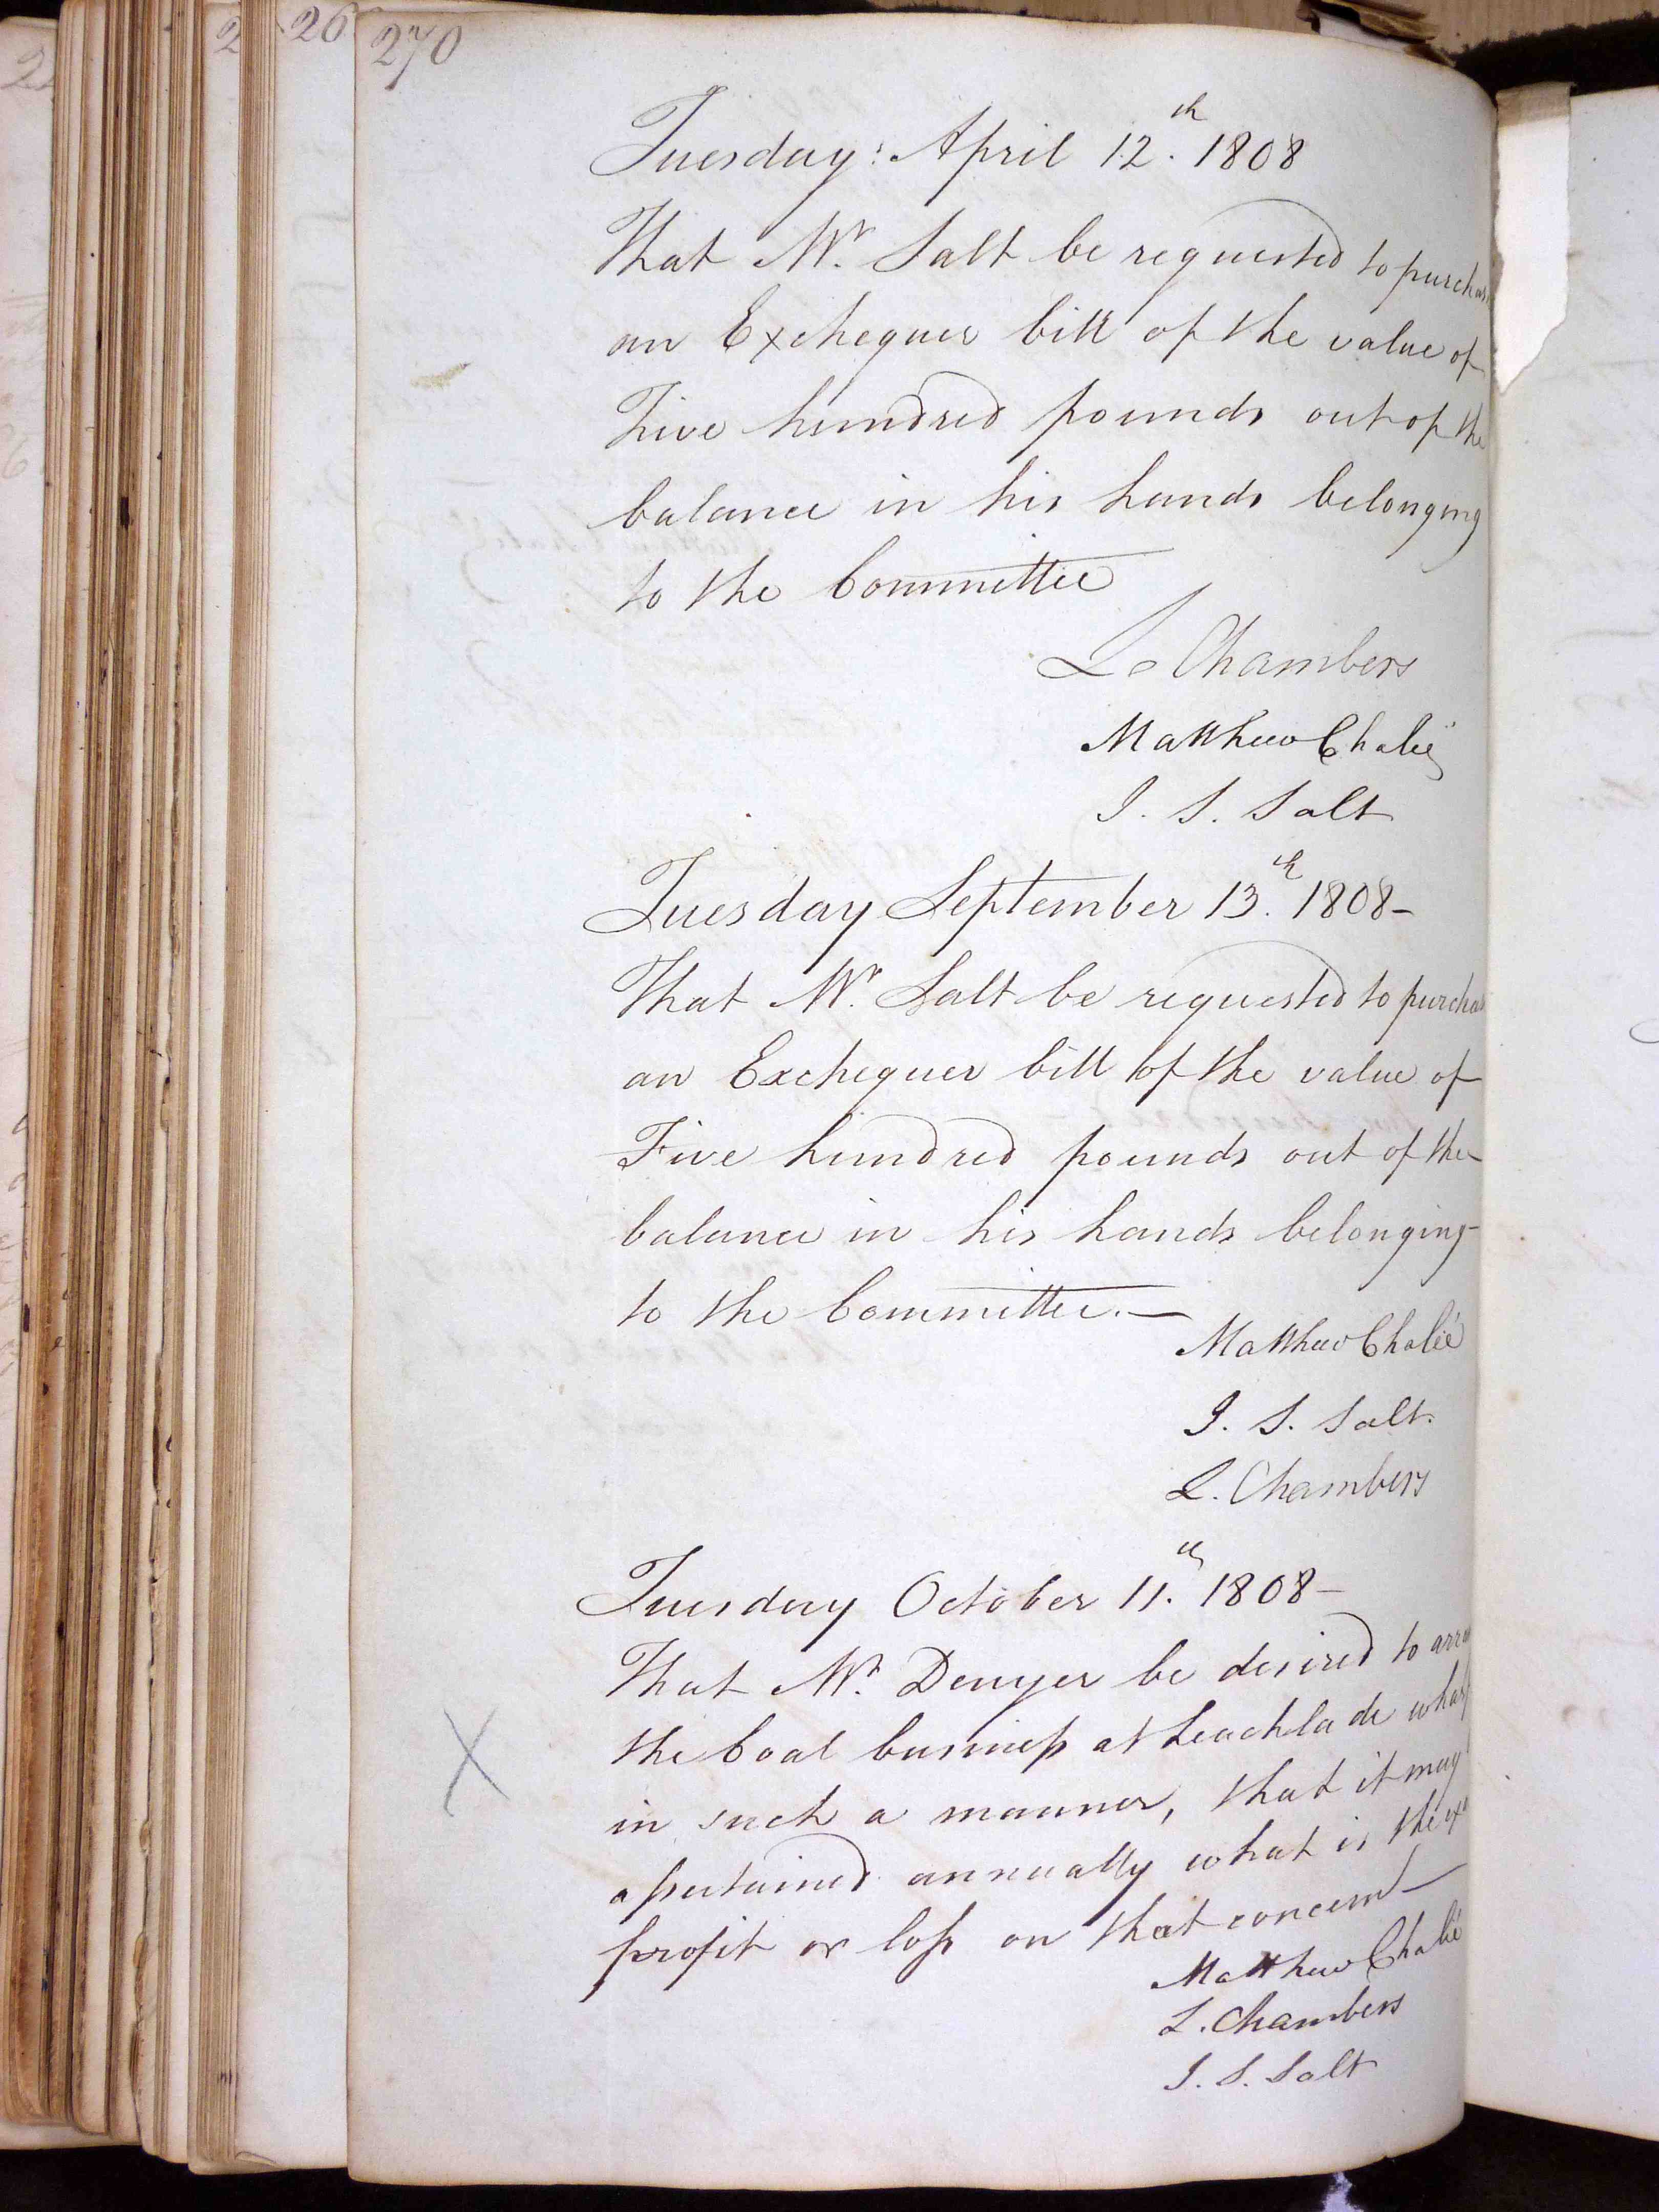 270
Tuesday: April 12.th 1808
That Mr. Salt be requested to purchas
an Exchequer bill of the value of
Five hundred pounds out of the
balance in his hands belonging
to the Committee
L Chambers
Matthew Chalié
J. S. Salt
Tuesday September 13.th 1808-
That Mr. Salt be requested to purchas
an Exchequer bill of the value of
Five hundred pounds out of the
balance in his hands belonging
to the Committee.—
Matthew Chalié
J. S. Salt.
L. Chambers
Tuesday October 11.th 1808-
That Mr. Denyer be desired to arra
X
the Coal business at Leachlade wharf
in such a manner, that it may
assertained annually what is the ex
profit or loss on that concern—
Matthew Chalié
L. Chambers
J. S. Salt
26